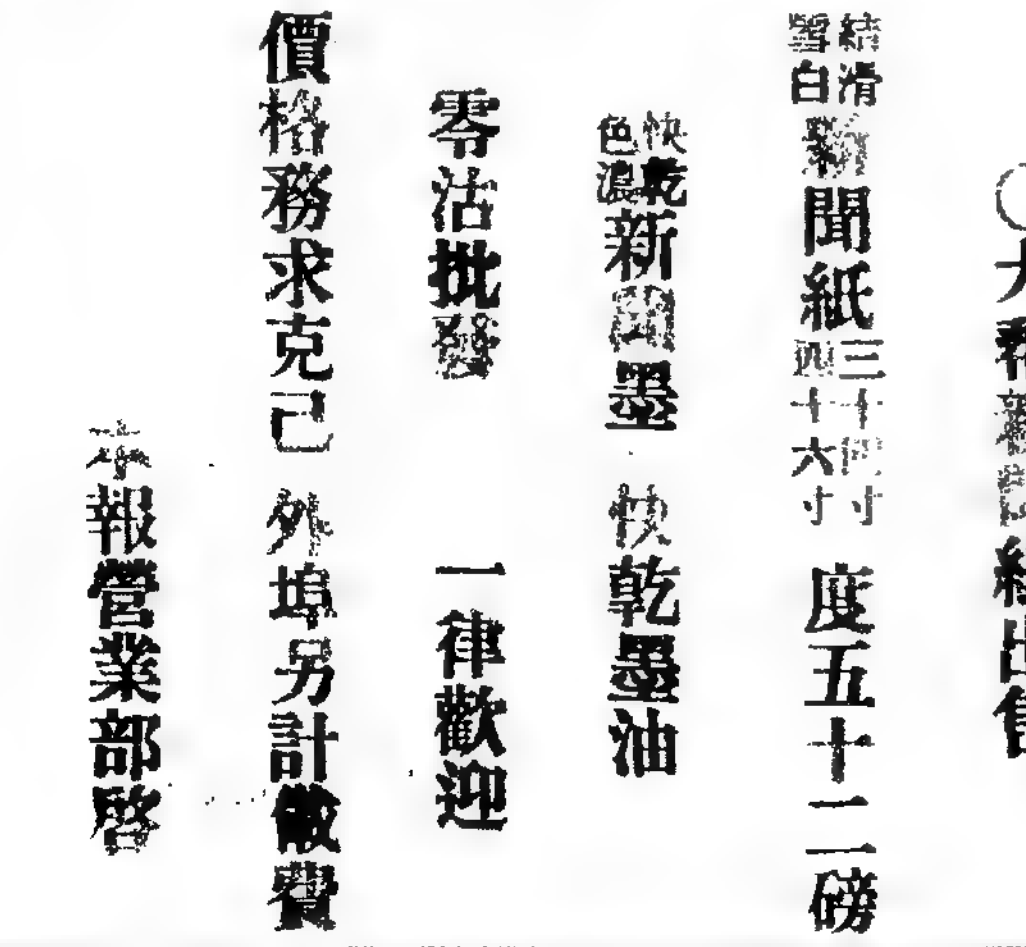 結滑雪白新聞紙三十四寸四十六寸 度五十二磅
快乾色浪新聞墨 快乾墨油
零沽批發 一律歡迎
價格務求克己 外埠另計儎費
本報營業部啓